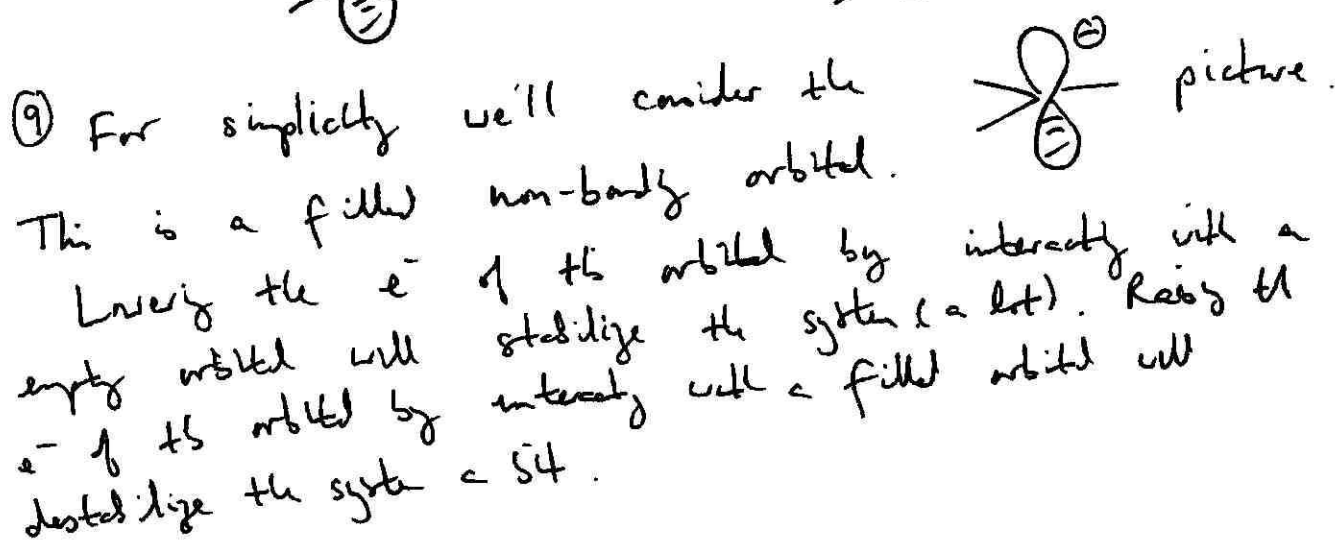 ⑨ For simplicity we'll consider the ⊖ picture.
This is a filled non-bonding orbital.
Lowering the e⁻ of this orbital by interacting with a
empty orbital will stabilize the system (a lot). Raising the
e⁻ of this orbital by interacting with a filled orbital will
destabilize the system a bit.